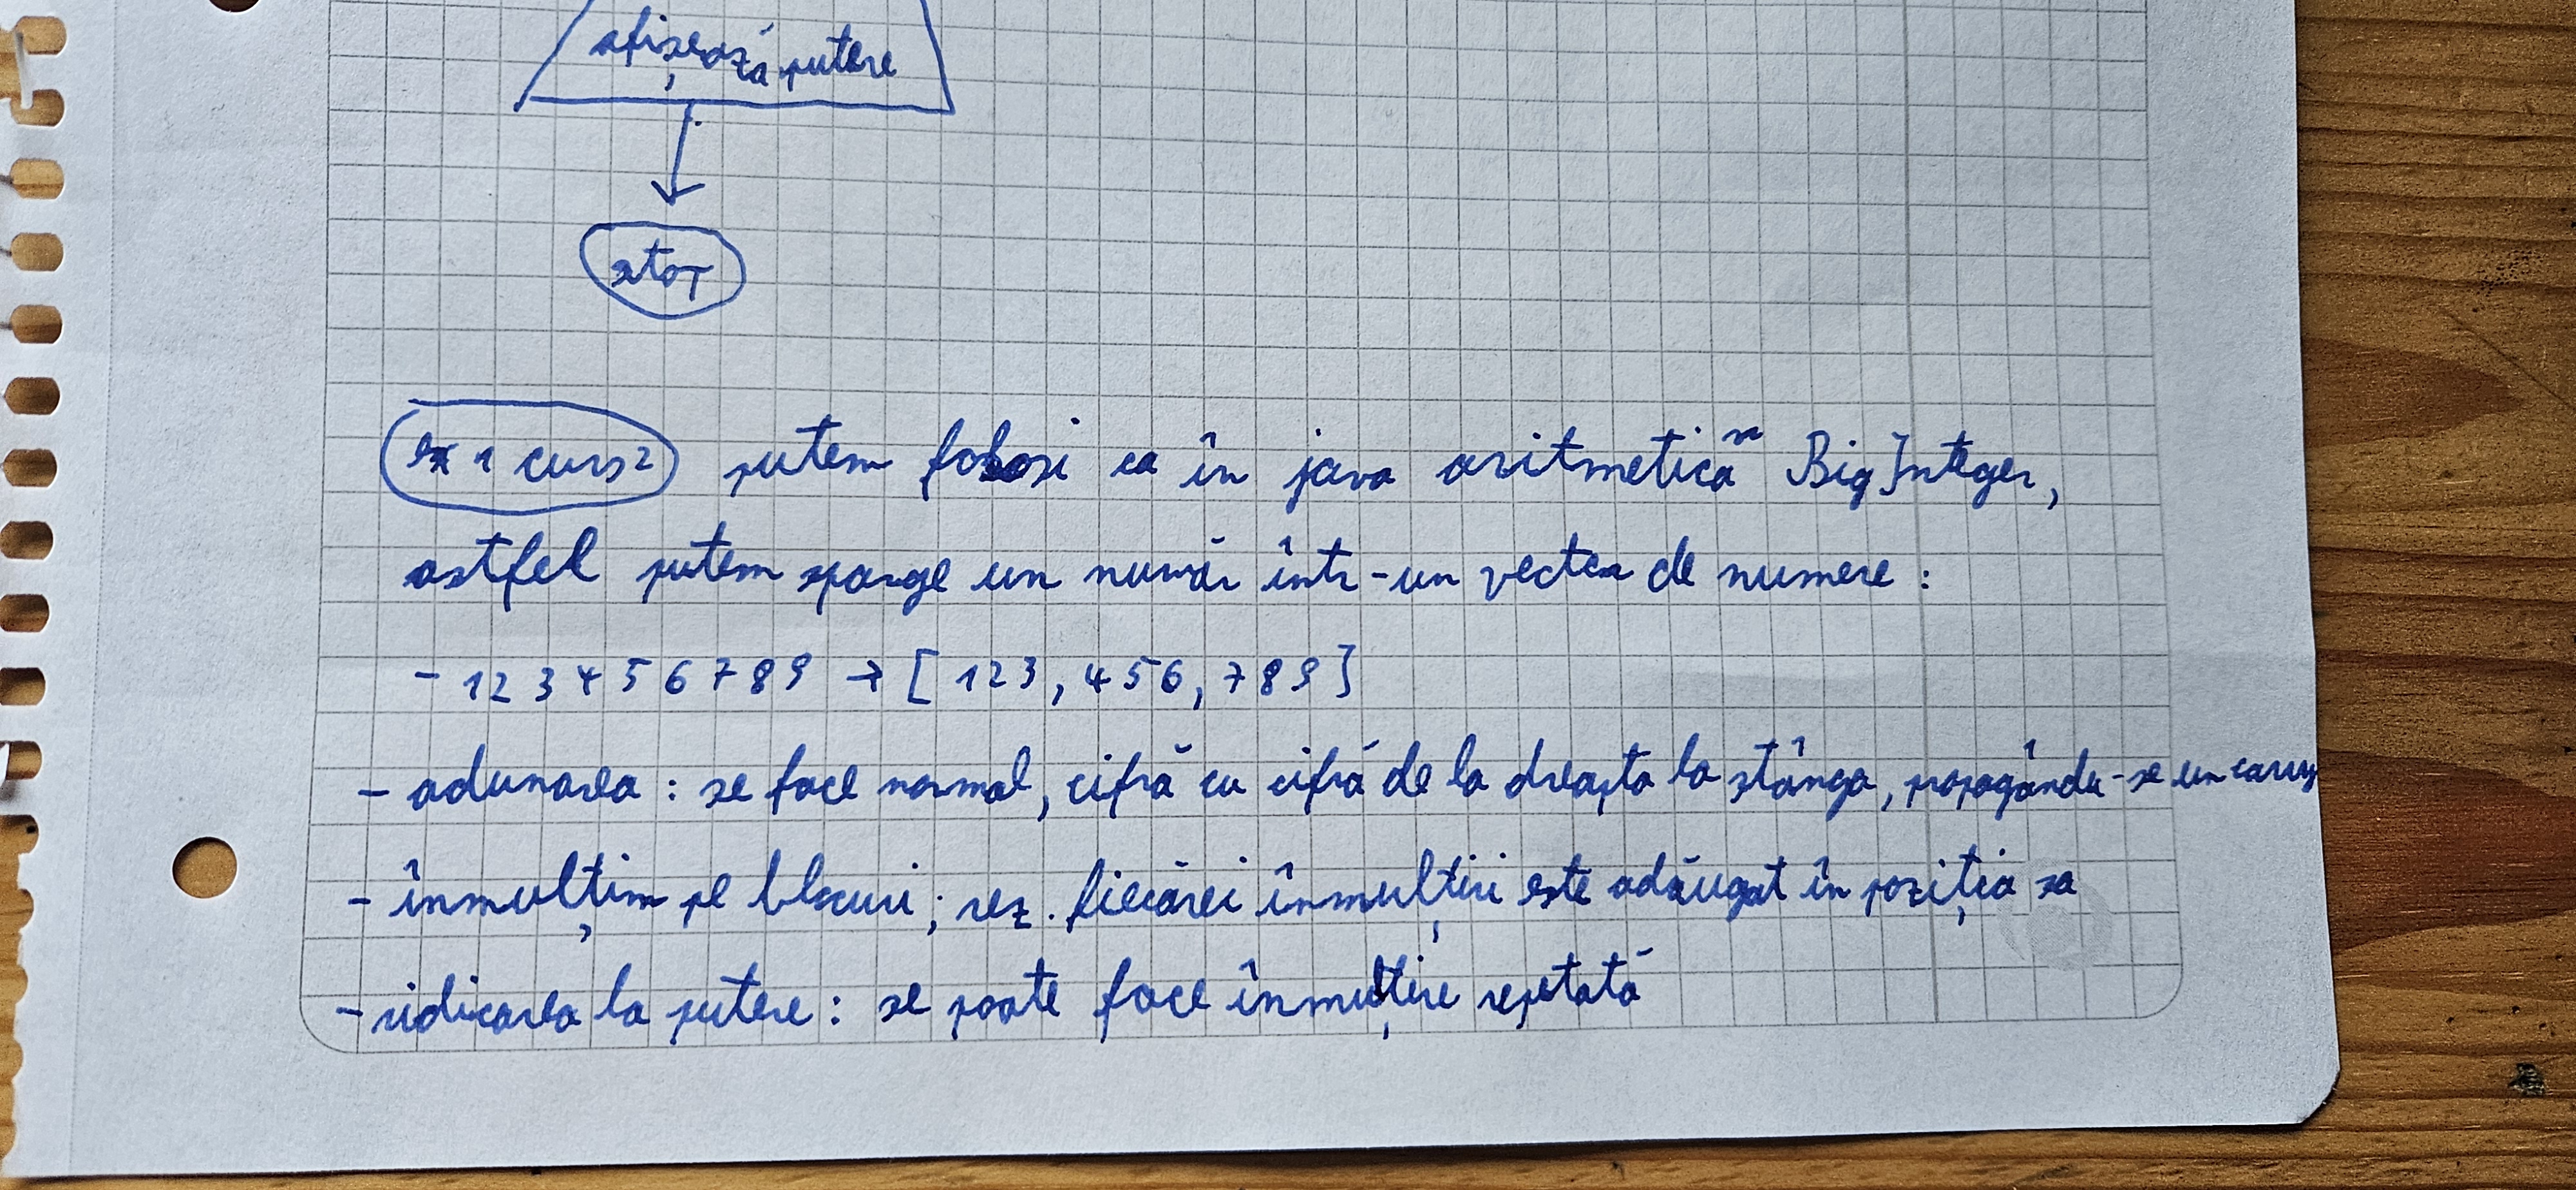 afișează putere
stop
ex 1 curs 2 putem folosi ca în java aritmetică BigInteger,
astfel putem sparge un număr într-un vector de numere :
- 123456789 → [123, 456, 789]
- adunarea : se face normal, cifră cu cifră de la dreapta la stânga, propagându-se un carry
- înmulțim pe blocuri; rez. fiecărei înmulțiri este adăugat în poziția sa
- ridicarea la putere : se poate face înmulțire repetată